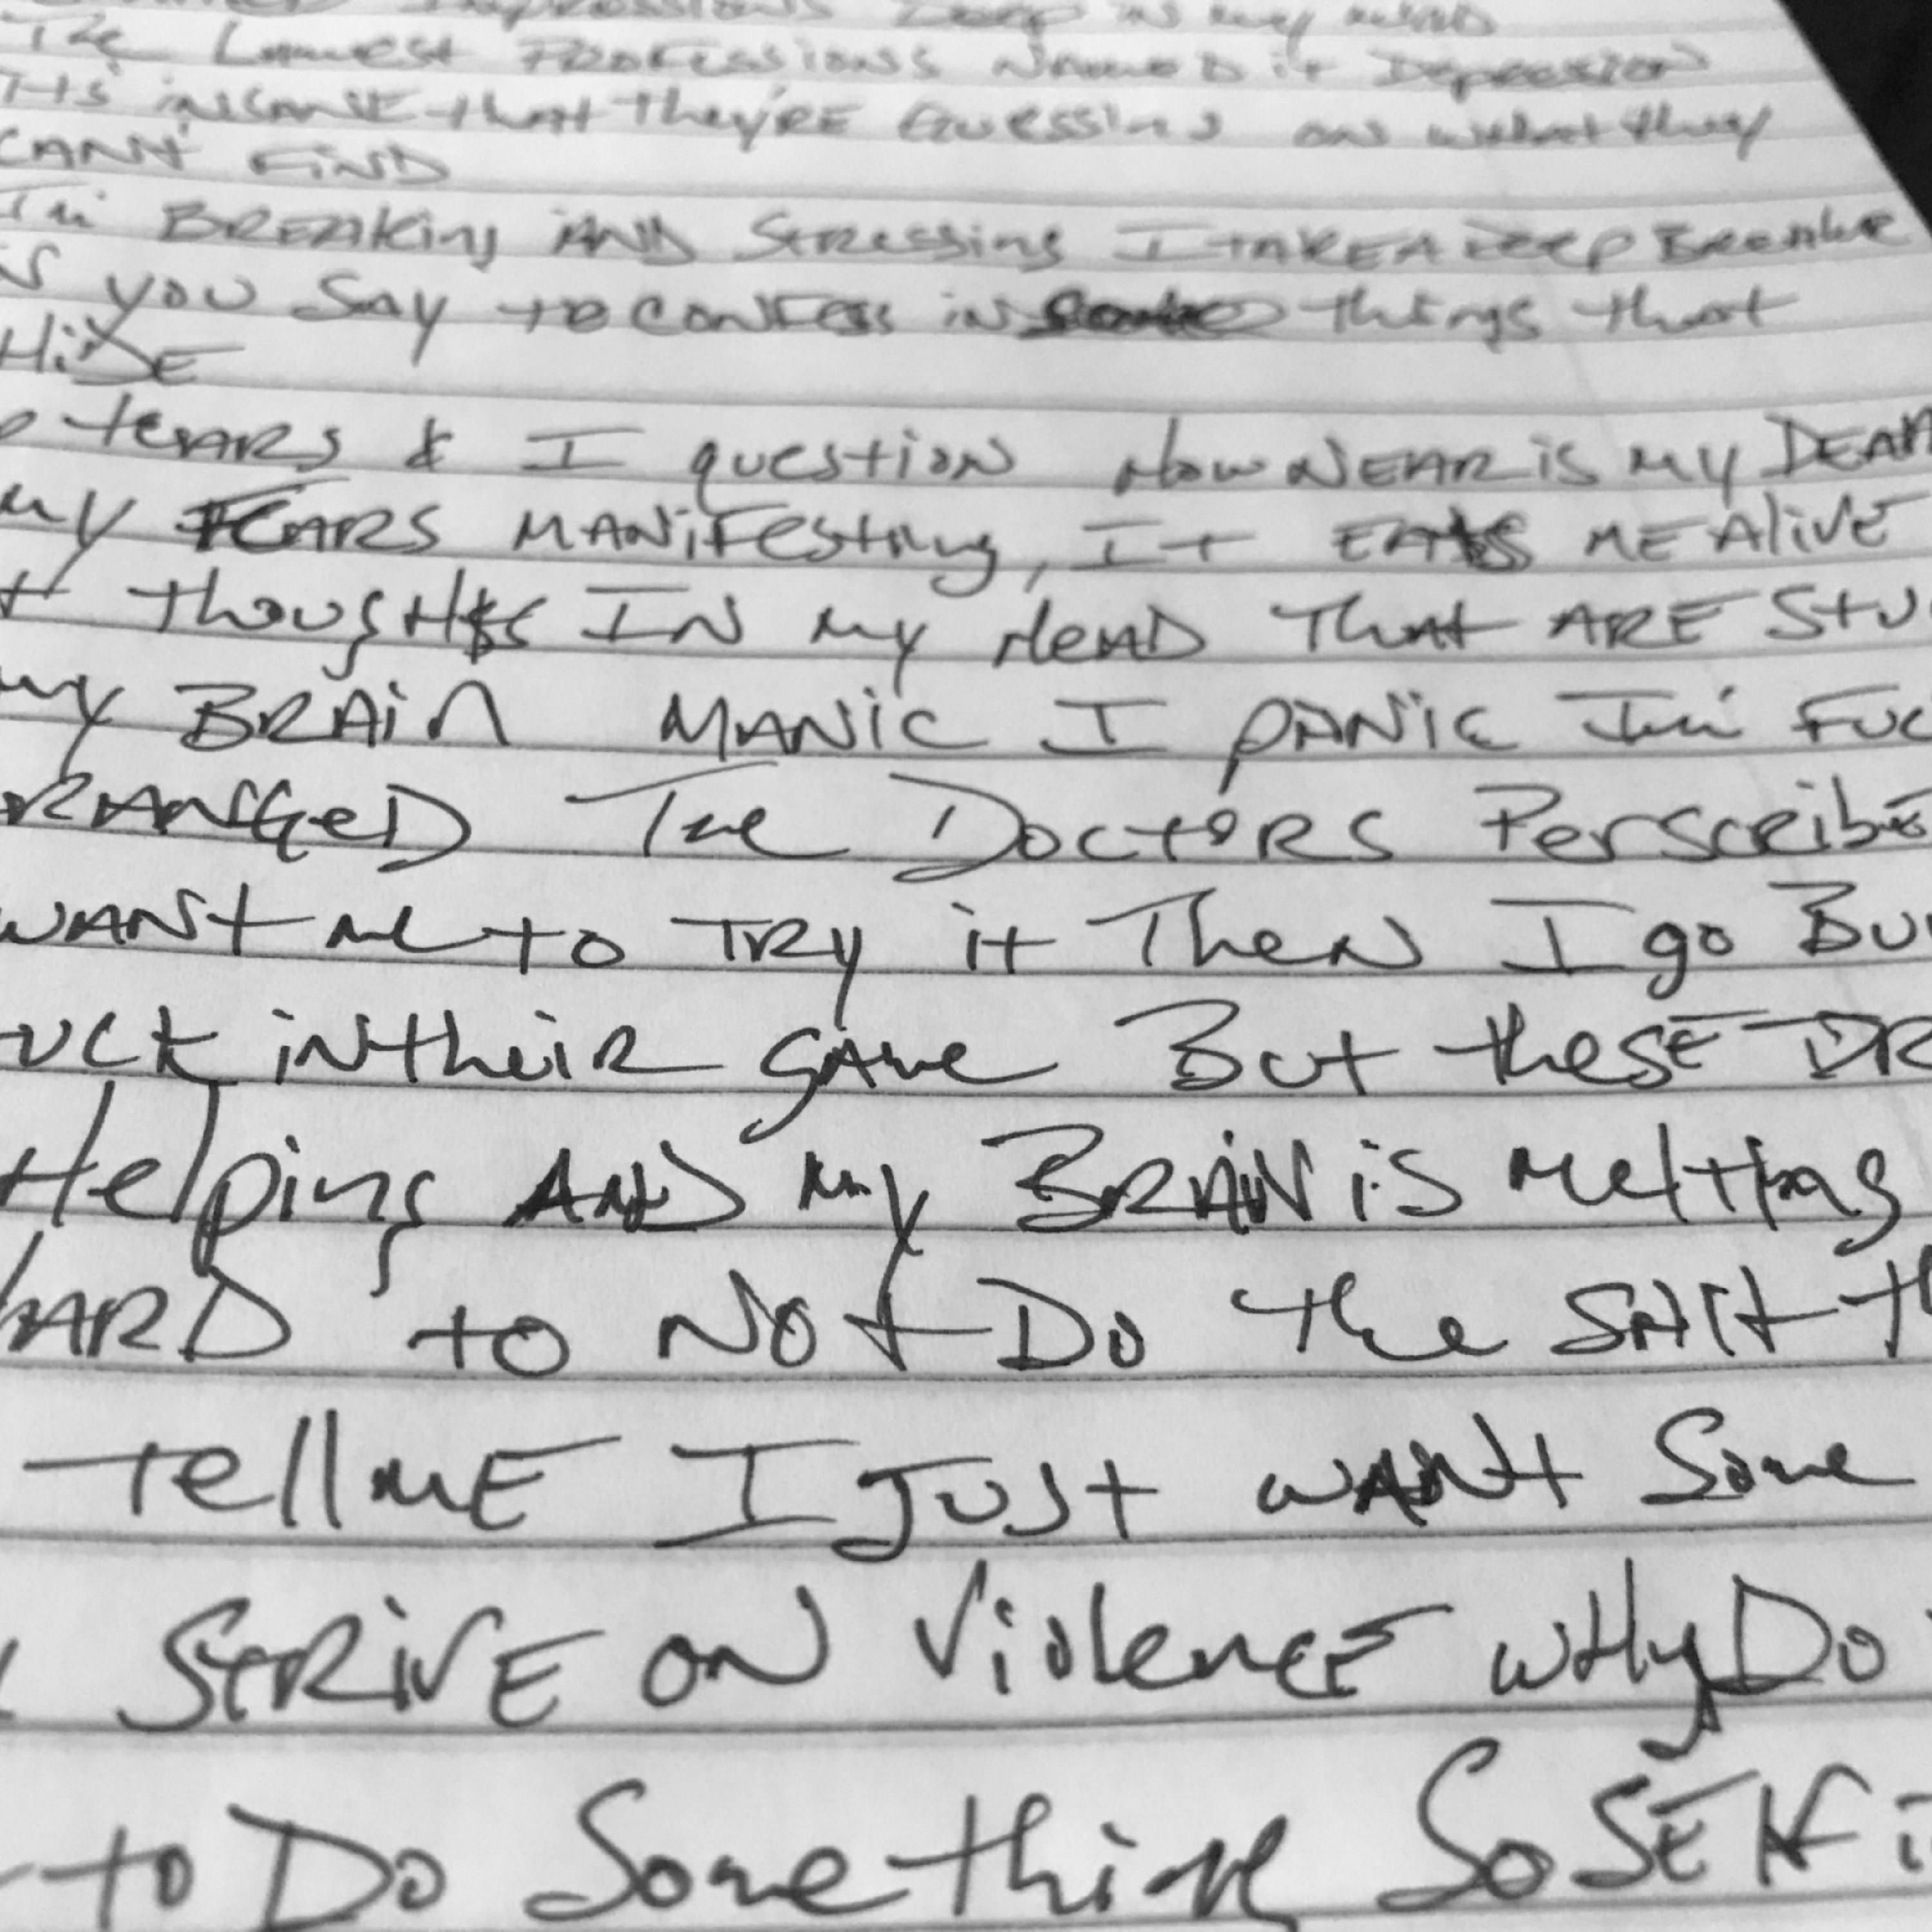 Impressions Deep in my mind
The Lowest Professions Named it Depression
Its insane that they're Guessing on what they
CAN't FiND
I'm BREAKing AND Stressing I TAKE A Deep Breathe
you SAy to CONFess in things that
HiDE
tears & I question How NEAR is my DEAT
my FEARS MANiFesting, It EATS ME Alive
thoughts IN my HeAD That ARE Stu
my BRAin MANiC I PANiC I'm Fuc
RANGeD The DoctoRS Perscribe
WANt me to TRy it TheN I go Bu
uck iNtheiR gAme But theSE DR
Helping AND my BRAiN is melting
hARD to Not Do the SHit th
tell mE I Just WANt Some
StRivE oN ViolencE wHy Do
to Do Something So SElf i